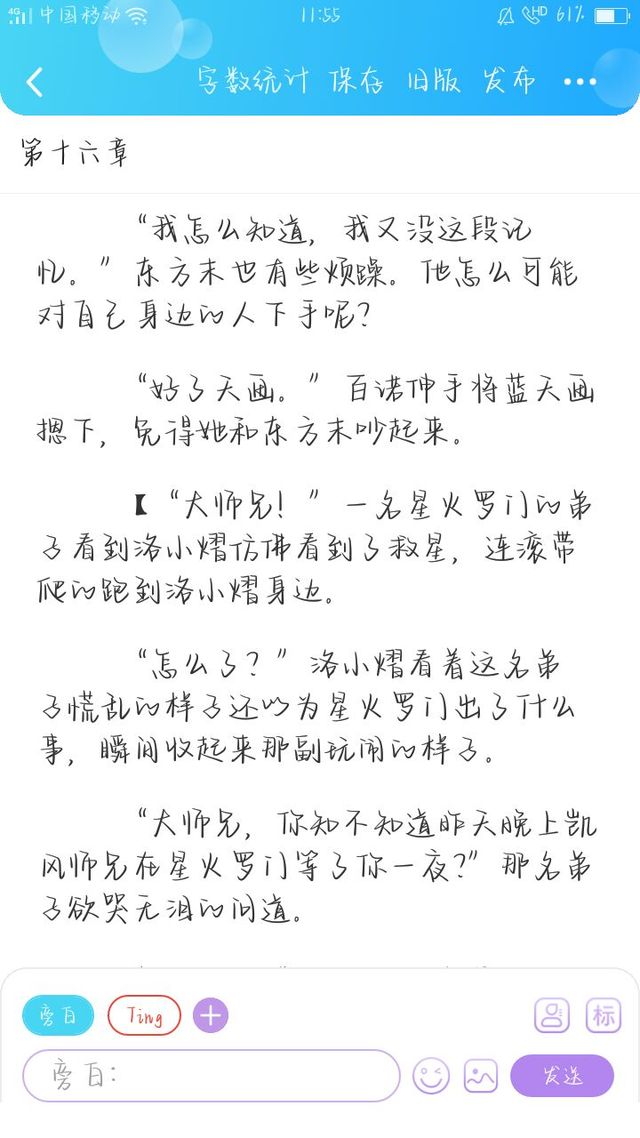 4G 中国移动 11:55 HD 61%
字数统计 保存 旧版 发布
第十六章
“我怎么知道，我又没这段记
忆。”东方末也有些烦躁。他怎么可能
对自己身边的人下手呢？
“好了天画。”百诺伸手将蓝天画
摁下，免得她和东方末吵起来。
【“大师兄！”一名星火罗门的弟
子看到洛小熠仿佛看到了救星，连滚带
爬的跑到洛小熠身边。
“怎么了？”洛小熠看着这名弟
子慌乱的样子还以为星火罗门出了什么
事，瞬间收起来那副玩闹的样子。
“大师兄，你知不知道昨天晚上凯
风师兄在星火罗门等了你一夜？”那名弟
子欲哭无泪的问道。
旁白 Ting 标
旁白： 发送